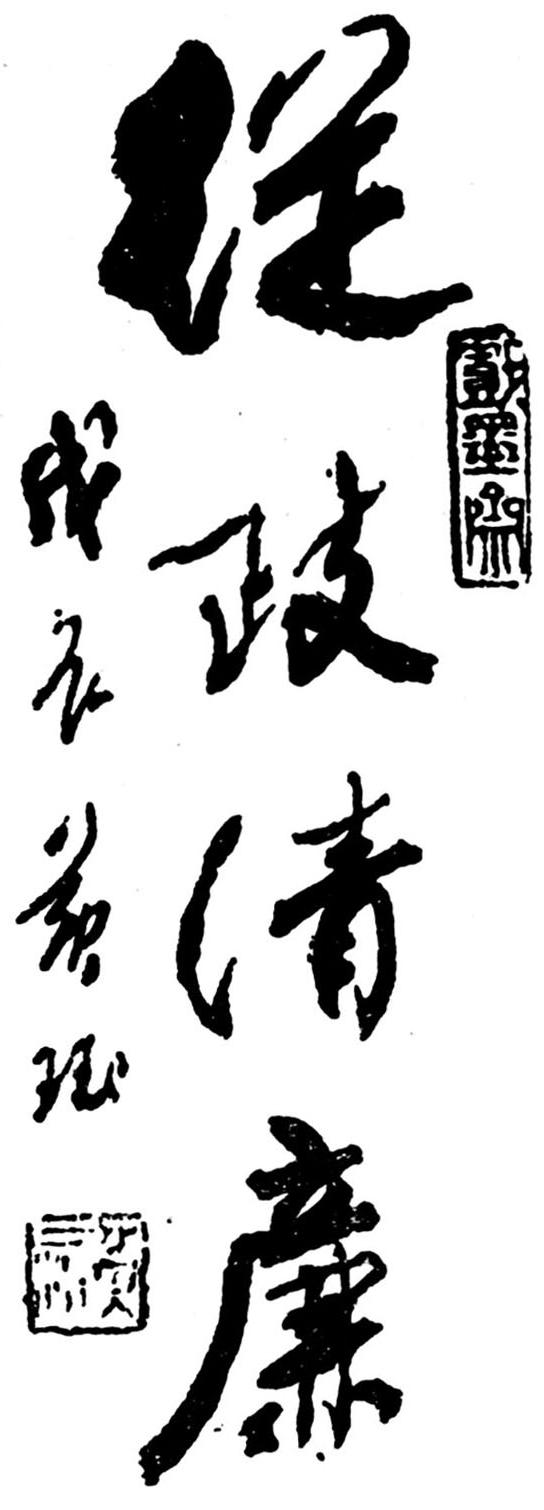 從政清廉
戊辰 黃珪